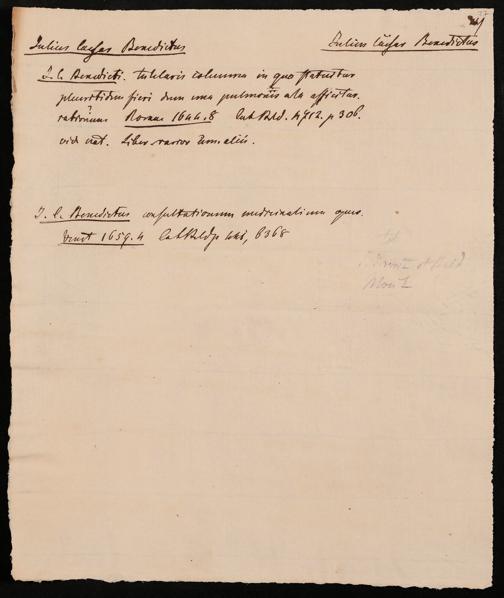 Julius Caesar Benedictus
Julius Caesar Benedictus
J. C. Benedicti. tutelaris columna in quo statuitur
pleuritidem fieri dum una pulmonis ala afficitur.
Romae 1644. 8 Cat. p 306.
vid nat. Liber rarior
J. C. Benedictus consultationum medicinalium opus.
Venet 1659. 4 6368